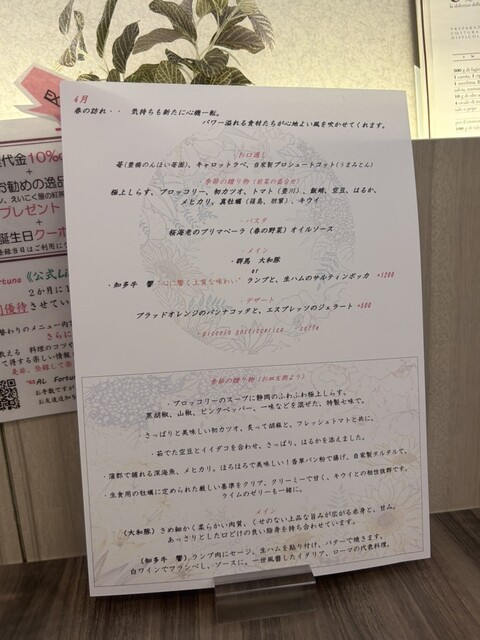 4月
春の訪れ・・ 気持ちも新たに心機一転。
パワー溢れる食材たちが心地よい風を吹かせてくれます。
・お口通し
苺(豊橋のんほい苺園)、キャロットラペ、自家製プロシュートコット(うまみとん)
・季節の贈り物(前菜の盛合せ)
極上しらす、ブロッコリー、初カツオ、トマト(豊川)、飯蛸、空豆、はるか、
メヒカリ、真牡蠣(福島、胡麻)、キウイ
・パスタ
桜海老のプリマベーラ(春の野菜)オイルソース
・メイン
・群馬 大和豚
or
・知多牛 響 "心に響く上質な味わい" ランプと、生ハムのサルティンボッカ +1200
・デザート
ブラッドオレンジのパンナコッタと、エスプレッソのジェラート +500
caffe
季節の贈り物(お皿左側より)
・ブロッコリーのスープに静岡のふわふわ極上しらす。
黒胡椒、山椒、ピンクペッパー、一味などを混ぜた、特製七味で。
・さっぱりと美味しい初カツオ、炙って胡麻と、フレッシュトマトと共に。
・茹でた空豆とイイダコを合わせ、さっぱり、はるかを添えました。
・蒲郡で獲れる深海魚、メヒカリ。ほろほろで美味しい!香草パン粉で揚げ、自家製タルタルで。
・生食用の牡蠣に定められた厳しい基準をクリア。クリーミーで甘く、キウイとの相性抜群です。
ライムのゼリーも一緒に。
メイン
(大和豚)きめ細かく柔らかい肉質、くせのない上品な旨みが広がる赤身と、甘み。
あっさりとした口どけの良い脂身を持ち合わせています。
(知多牛 響)ランプ肉にセージ、生ハムを貼り付け、バターで焼きます。
白ワインでフランベし、ソースに。一世風靡したイタリア、ローマの代表料理。
代金10%
+
お勧めの逸品
プレゼント
+
誕生日クーポン
《公式L
2か月に1
優待させてい